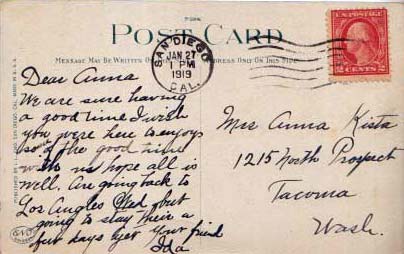 POST CARD
MESSAGE MAY BE WRITTEN ON
ADDRESS ONLY ON THIS SIDE
SAN DIEGO
JAN 27
1 PM
1919
CAL.
U.S. POSTAGE
2 CENTS 2
Dear Anna
We are sure having
a good time I wish
you were here to enjoy
some of the good time
with us hope all is
well. Are going back to
Los Angles Wed but
going to stay their a
few days yet your friend
Ida
Mrs Anna Kista
1215 North Prospect
Tacoma
Wash.